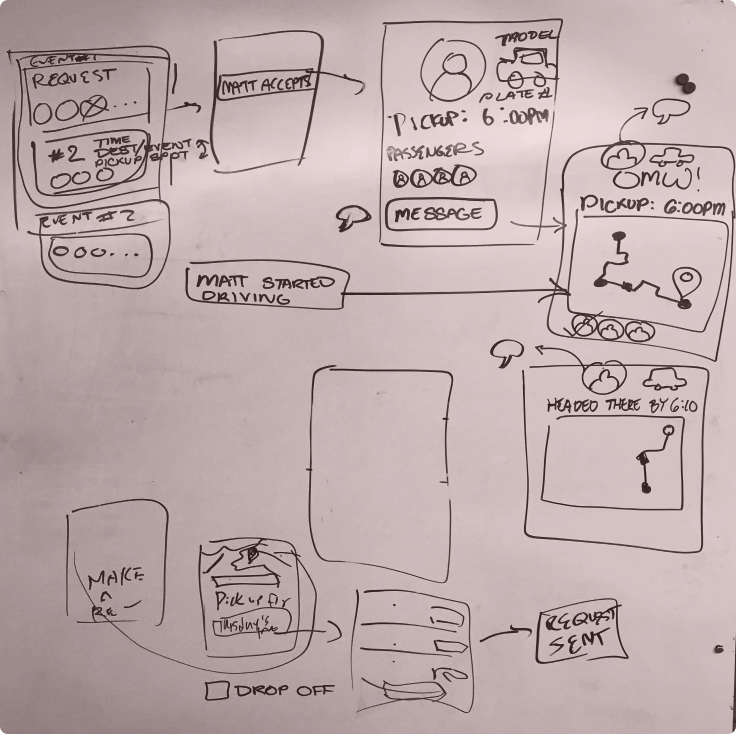 EVENT #1
REQUEST
#2 TIME
DEST/EVENT
PICKUP SPOT
EVENT #2
MATT ACCEPTS
MODEL
PLATE #
PICKUP: 6:00PM
PASSENGERS
MESSAGE
OMW!
PICKUP: 6:00PM
MATT STARTED
DRIVING
HEADED THERE BY 6:10
MAKE
A
RE-
Pick up for
DROP OFF
REQUEST
SENT